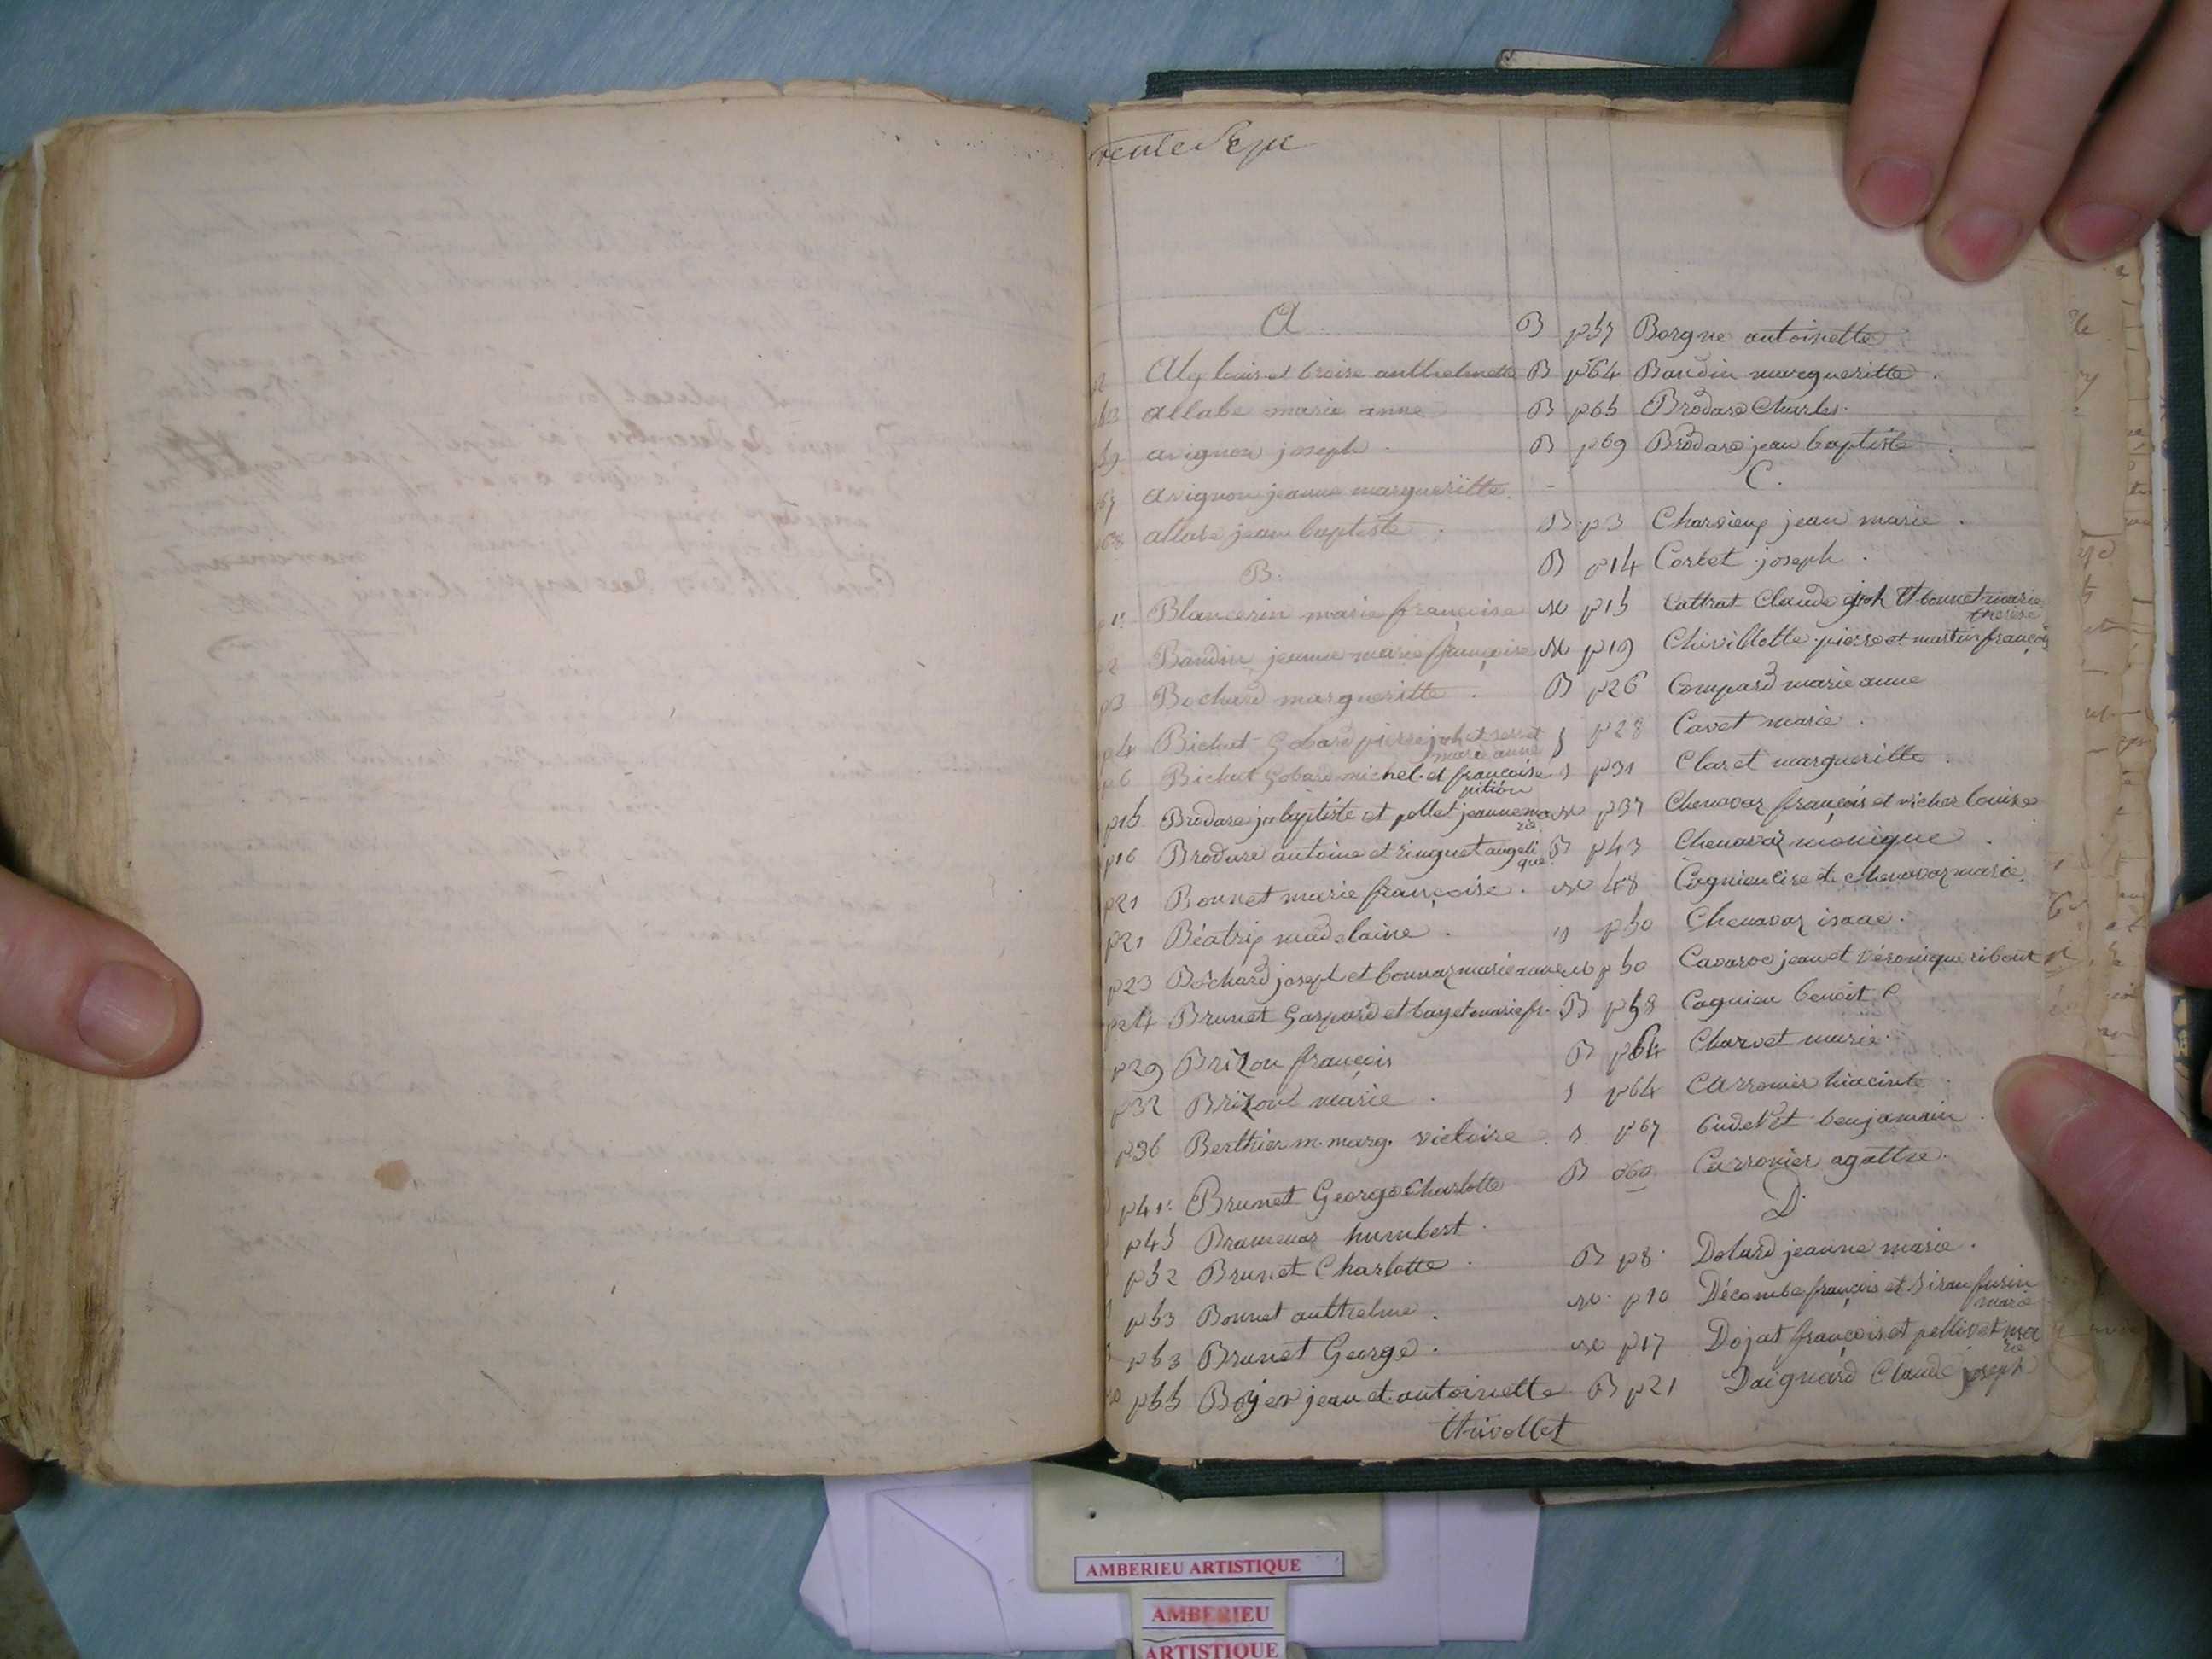 trente Sept
A
Aly louis et broise anthelmette
allabe marie anne
avignon joseph
avignon jeanne margueritte
allabe jean baptiste
B.
Blancerin marie françoise
p2 Baudin jeanne marie françoise
p3 Bochard margueritte
p4 Bichut Gobard pierre jph et
marie anne
p6 Bichut Gobard michel et françoise
pition
p15 Brodare jn baptiste et pollet jeanne ma
rie
p16 Brodare antoine et ringuet angeli
que
p21 Bonnet marie françoise
p21 Béatrix madelaine
p23 Bochard joseph et bonnaz marie anne
p24 Brunet Gaspard et bayet marie fr.
p29 Brizou françois
p32 Brizout marie
p36 Berthier m. marg. victoire
p41 Brunet George Charlotte
p45 Bramenas humbert
p52 Brunet Charlotte
p53 Bonnet anthelme
p53 Brunet George
p55 Bojer jean et antoinette
thivollet
B p57 Borgne antoinette
B p64 Baudin margueritte
B p65 Brodare Charles
B p69 Brodare jean baptiste
C.
B p3 Charvieux jean marie
B p14 Corbet joseph
p15 Cattrat Claude jph et bonnet marie
therese
p19 Chivillotte pierre et martin françois
B p26 Compard marie anne
p28 Cavet marie
p31 Claret margueritte
p37 Chenavaz françois et vicher louise
B p43 Chenavaz monique
48 Cagnieu cire et chenavaz marie
p50 Chenavaz isaac
p50 Cavaroc jean et véronique ribout
B p58 Cagnieu benoit C
B p64 Charvet marie
p64 Carronier hiacinte
p67 Cudevet benjamain
B Carronier agathe
D.
B p8 Dolard jeanne marie
p10 Décombe françois et
marie
p17 Dojat françois et pellivet ma
rie
B p21 Daignard Claude joseph
AMBERIEU ARTISTIQUE
AMBERIEU
ARTISTIQUE